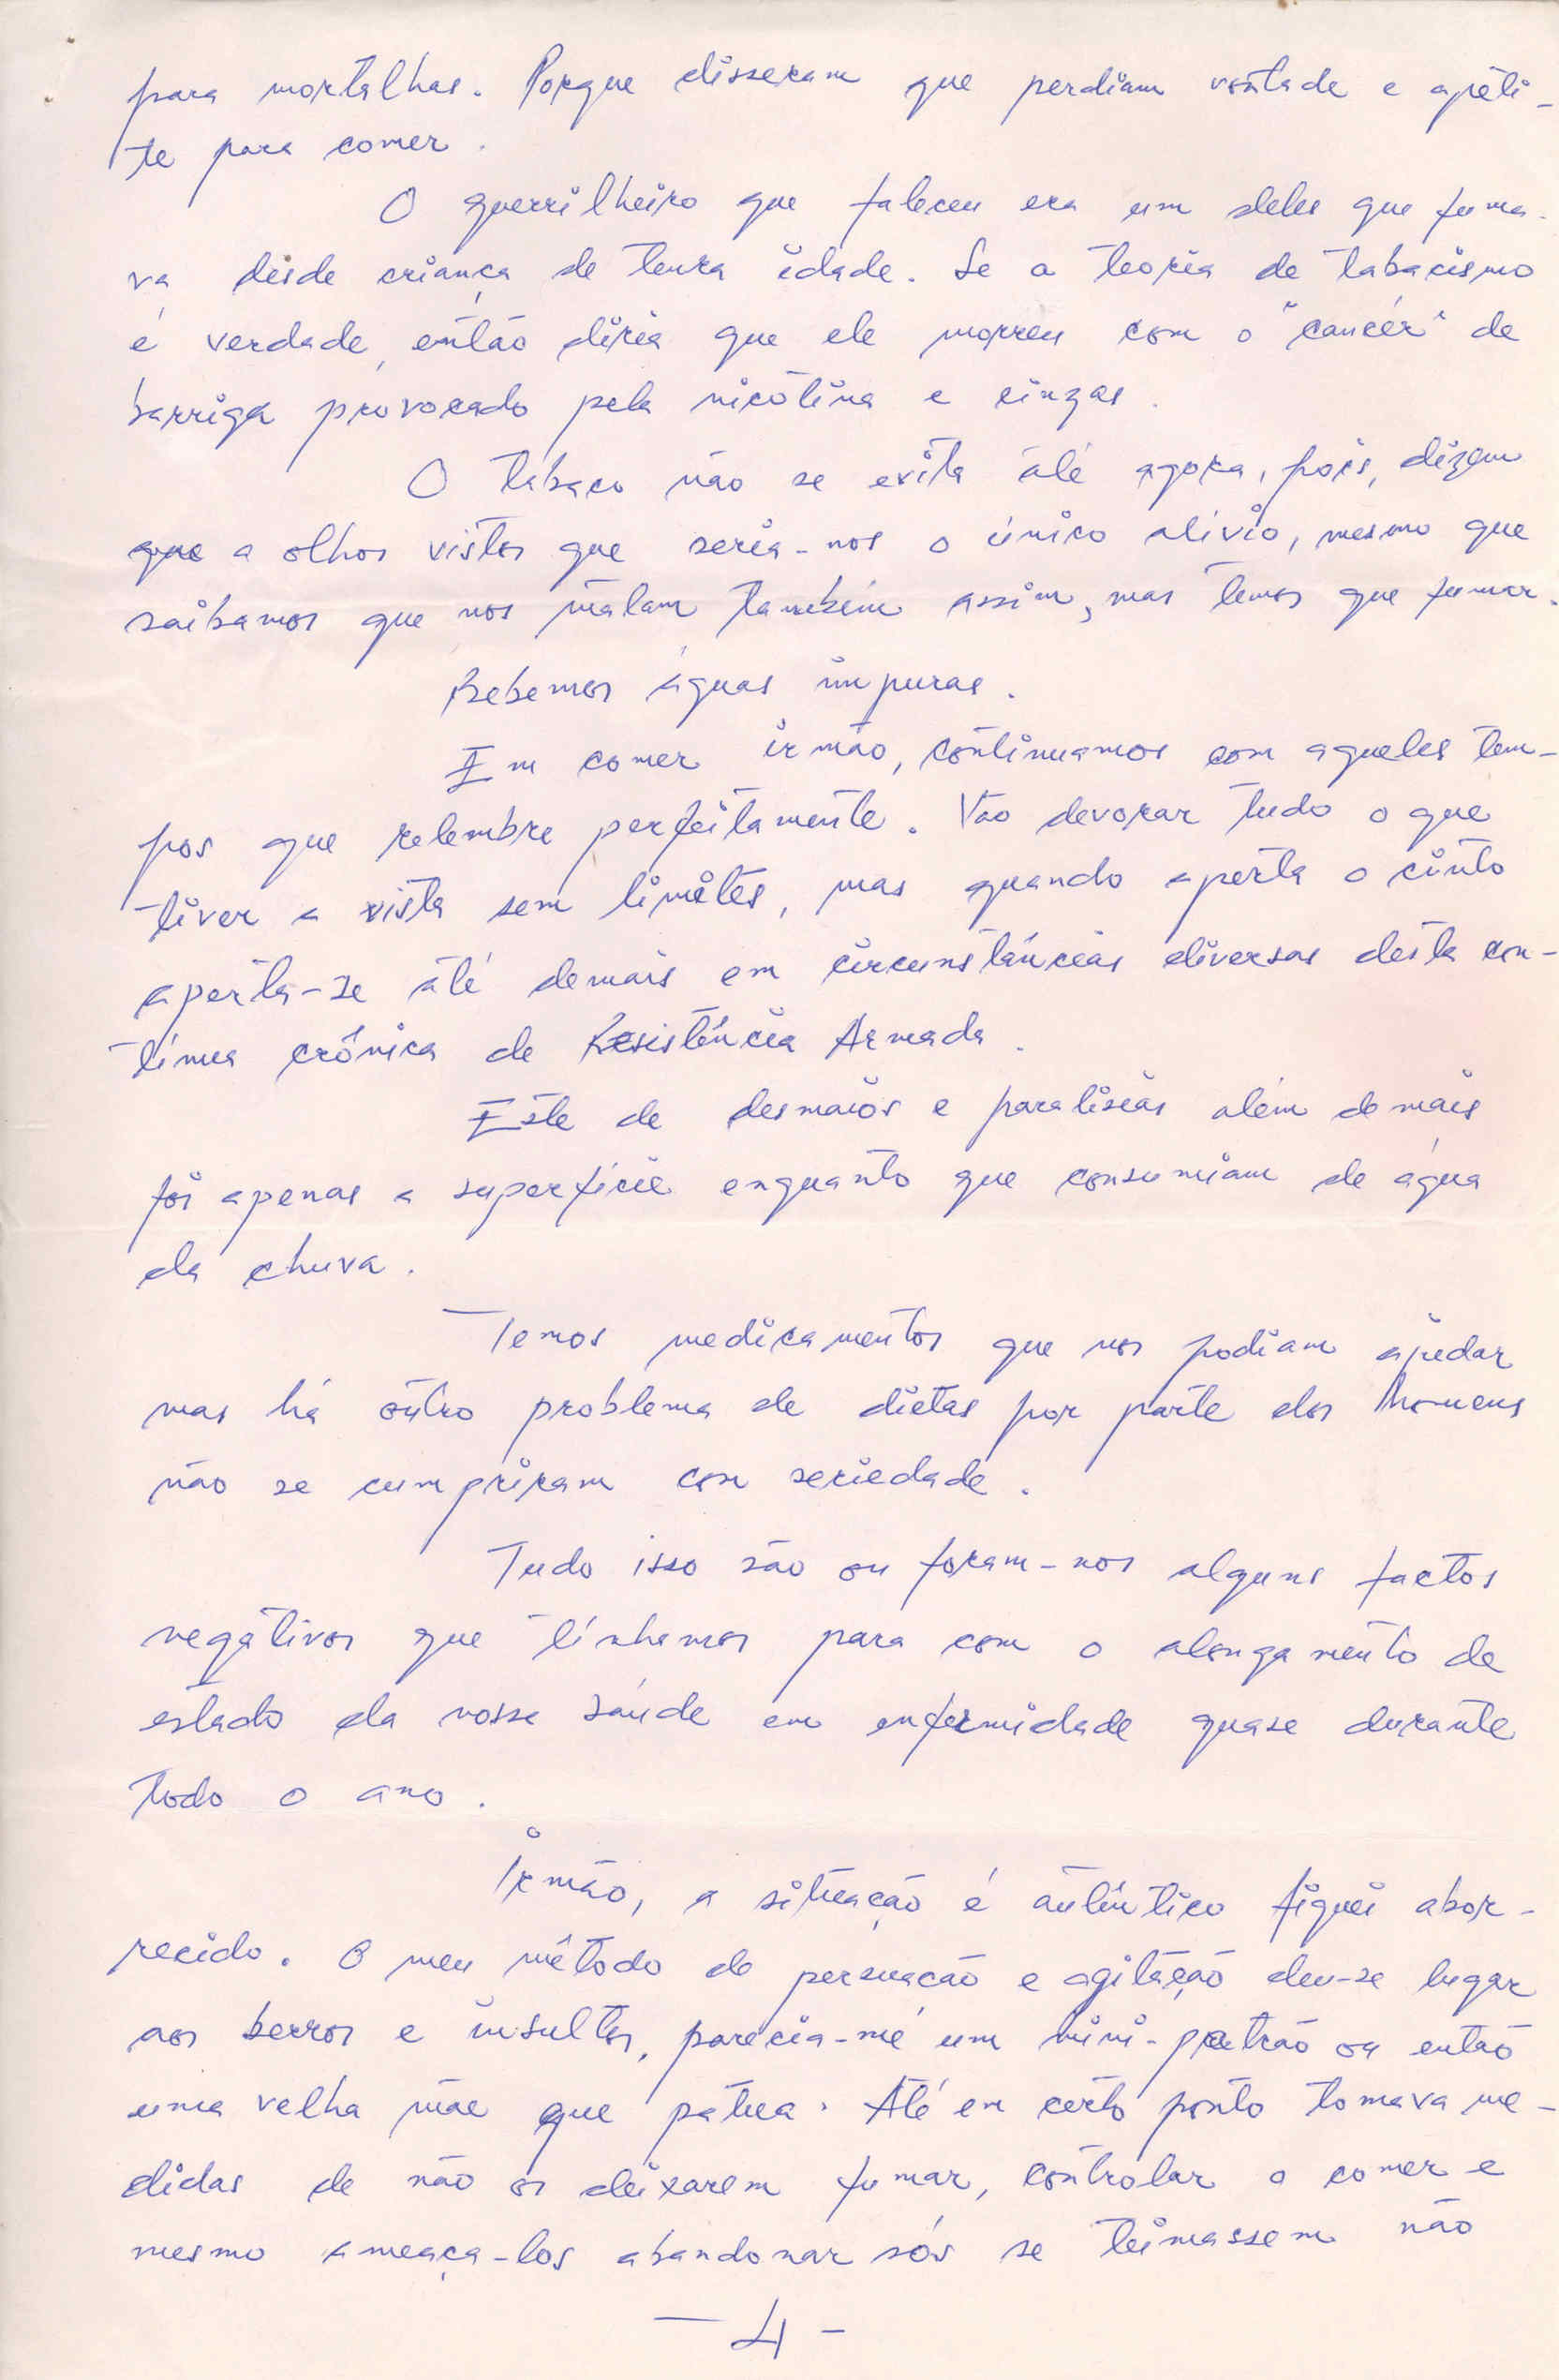 para mortalhas. Porque disseram que perdiam vontade e apeti-
te para comer.
O guerrilheiro que faleceu era um deles que fuma-
va desde criança de tenra idade. Se a teoria de tabacismo
é verdade, então diria que ele morreu com o "cancér" de
barriga provocado pela nicotina e cinzas.
O tabaco não se evita até agora, pois, dizem
que a olhos vistos que seria-nos o único alívio, mesmo que
saibamos que nos matam também assim, mas temos que fumar.
Bebemos águas impuras.
Em comer irmão, continuamos com aqueles tem-
pos que relembre perfeitamente. Vão devorar tudo o que
tiver a vista sem limites, mas quando aperta o cinto
aperta-se até demais em circunstâncias diversas desta con-
tínua crônica de Resistência Armada.
Este de desmaios e paralisias além do mais
foi apenas a superfície enquanto que consumiam de água
da chuva.
Temos medicamentos que nos podiam ajudar
mas há outro problema de dietas por parte dos homens
não se cumpriram com seriedade.
Tudo isso são ou foram-nos alguns factos
negativos que tínhamos para com o alongamento de
estado da nossa saúde em enfermidade quase durante
todo o ano.
Irmão, a situação é autêntico fiquei abor-
recido. O meu método de persuação e agitação deu-se lugar
aos berros e insultos, parecia-me um mini-patrão ou então
uma velha mãe que patua. Até em certo ponto tomava me-
didas de não os deixarem fumar, controlar o comer e
mesmo ameaça-los abandonar sós se teimassem não
- 4 -